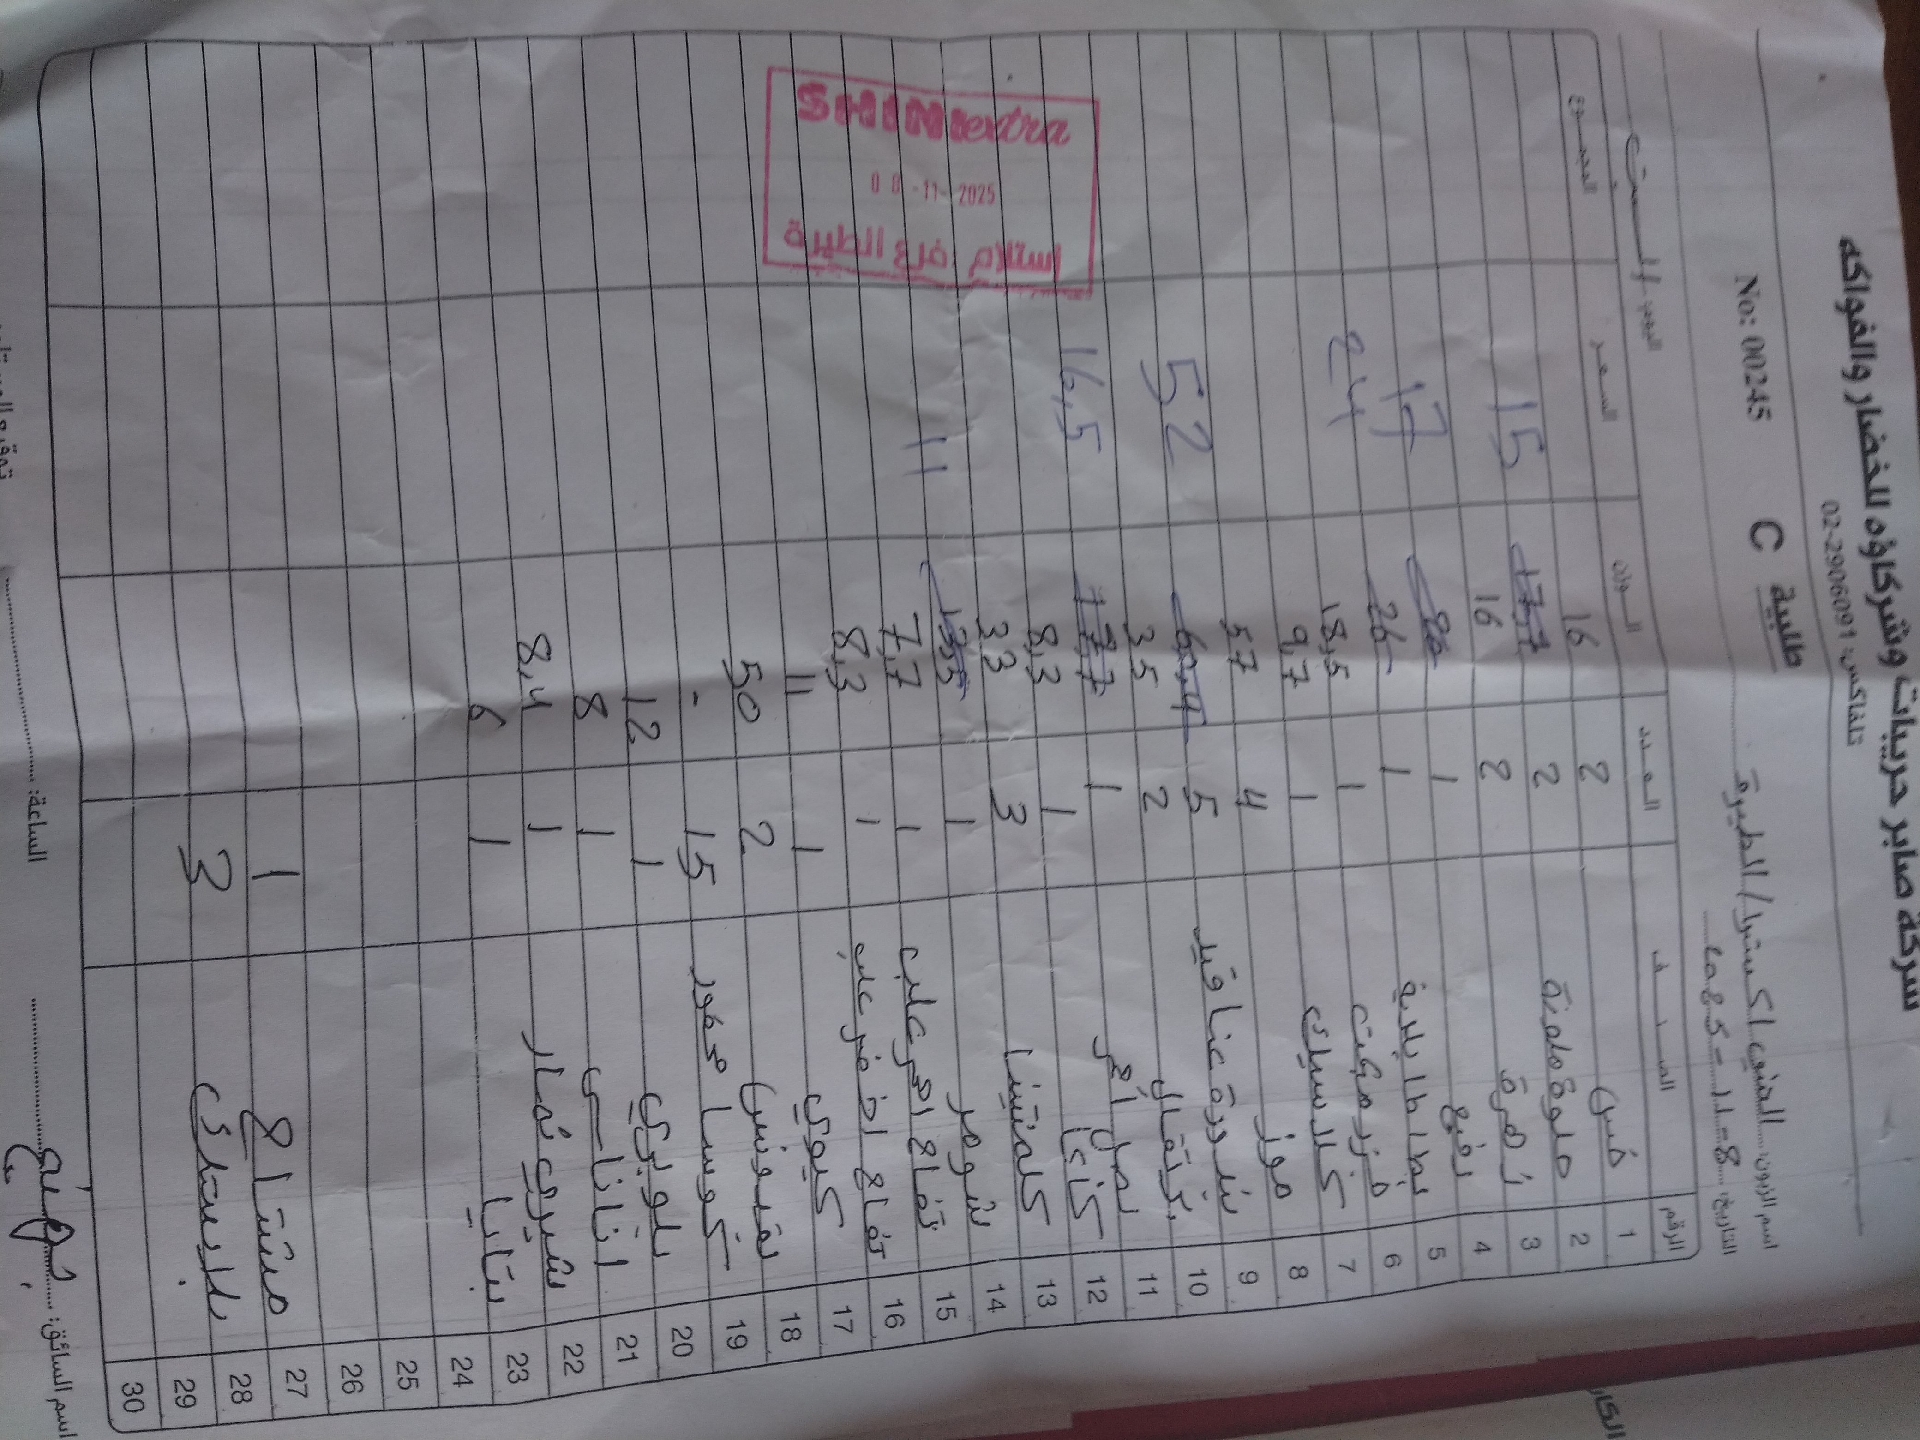 شركة صابر حريبات وشركاؤه للخضار والفواكه
تلفاكس: 02-2906091
No: 00245 C طلبية
اسم الزبون: الشني اكسترا / الطيرة
اليوم: السبت التاريخ: 8-11-2025
الرقم الصنف العدد الوزن السعر المجموع
1 خس 2 16
2 ملوة ملونة 2 17,7 15
3 زهرة 2 16
4 رفيع 1 26 17
5 بطاطا بلدية 1 26 24
6 فزر موكت 1 18,5
7 كلاسيك 1 9,7
8 موز 4 57
9 بندورة عناقيد 5 60,4 52
10 برتقال 2 35
11 بصل احمر 1 17,7 16,5
12 كاكا 1 8,3
13 كلمنتينا 3 33
14 شومر 1 13,5 11
15 تفاح احمر علب 1 7,7
16 تفاح اخضر علب 1 8,3
17 كيوي 1 11
18 بقدونس 2 50
19 كوسا محفور 15 -
20 بلوبري 1 12
21 اناناس 1 8
22 شيري خمار 1 8,4
23 بتايا 1 6
24
25
26
27 مشتاح 1
28 بلاستيك 3
29
30
SHINI extra
08-11-2025
إستلام فرع الطيرة
اسم السائق:
الساعة: